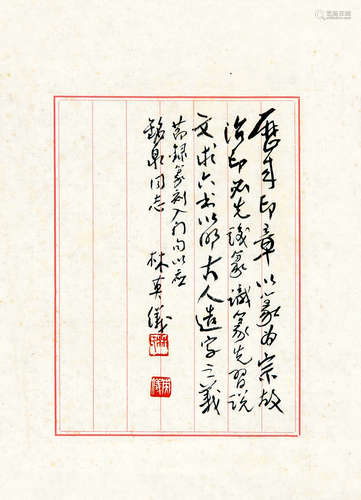 历来印章以篆为宗故
治印必先识篆识篆先习说
文求六书以明古人造字之义
节录篆刻入门句以应
铭泉同志
林英仪